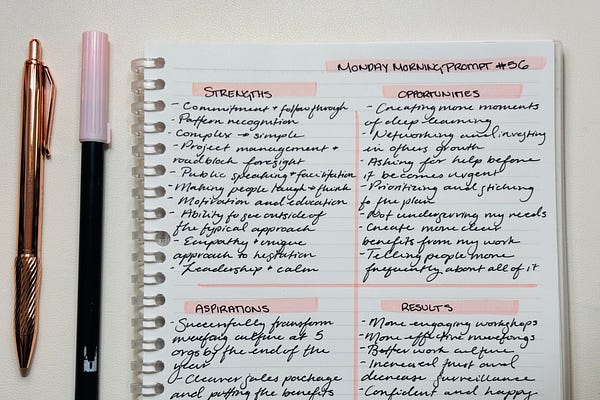 MONDAY MORNING PROMPT #56
STRENGTHS
- Commitment + followthrough
- Pattern recognition
Complex → simple
- Project management +
roadblock foresight
- Public speaking + facilitation
- Making people laugh + think
- Motivation and education
- Ability to see outside of
the typical approach
- Empathy + unique
approach to
- Leadership + calm
OPPORTUNITIES
- Creating more moments
of deep learning
- Networking and investing
in others growth
- Asking for help before
it becomes urgent
- Prioritizing and sticking
to the plan
- Not my needs
- Create more clear
benefits from my work
- Telling people more
frequently about all of it
ASPIRATIONS
- Successfully transform
meeting culture at 5
orgs by the end of the
year
- Cleaner sales package
and putting the benefits
RESULTS
- More engaging workshops
- More effective meetings
- Better work culture
- Increased trust and
decrease surveillance
- Confident and happy